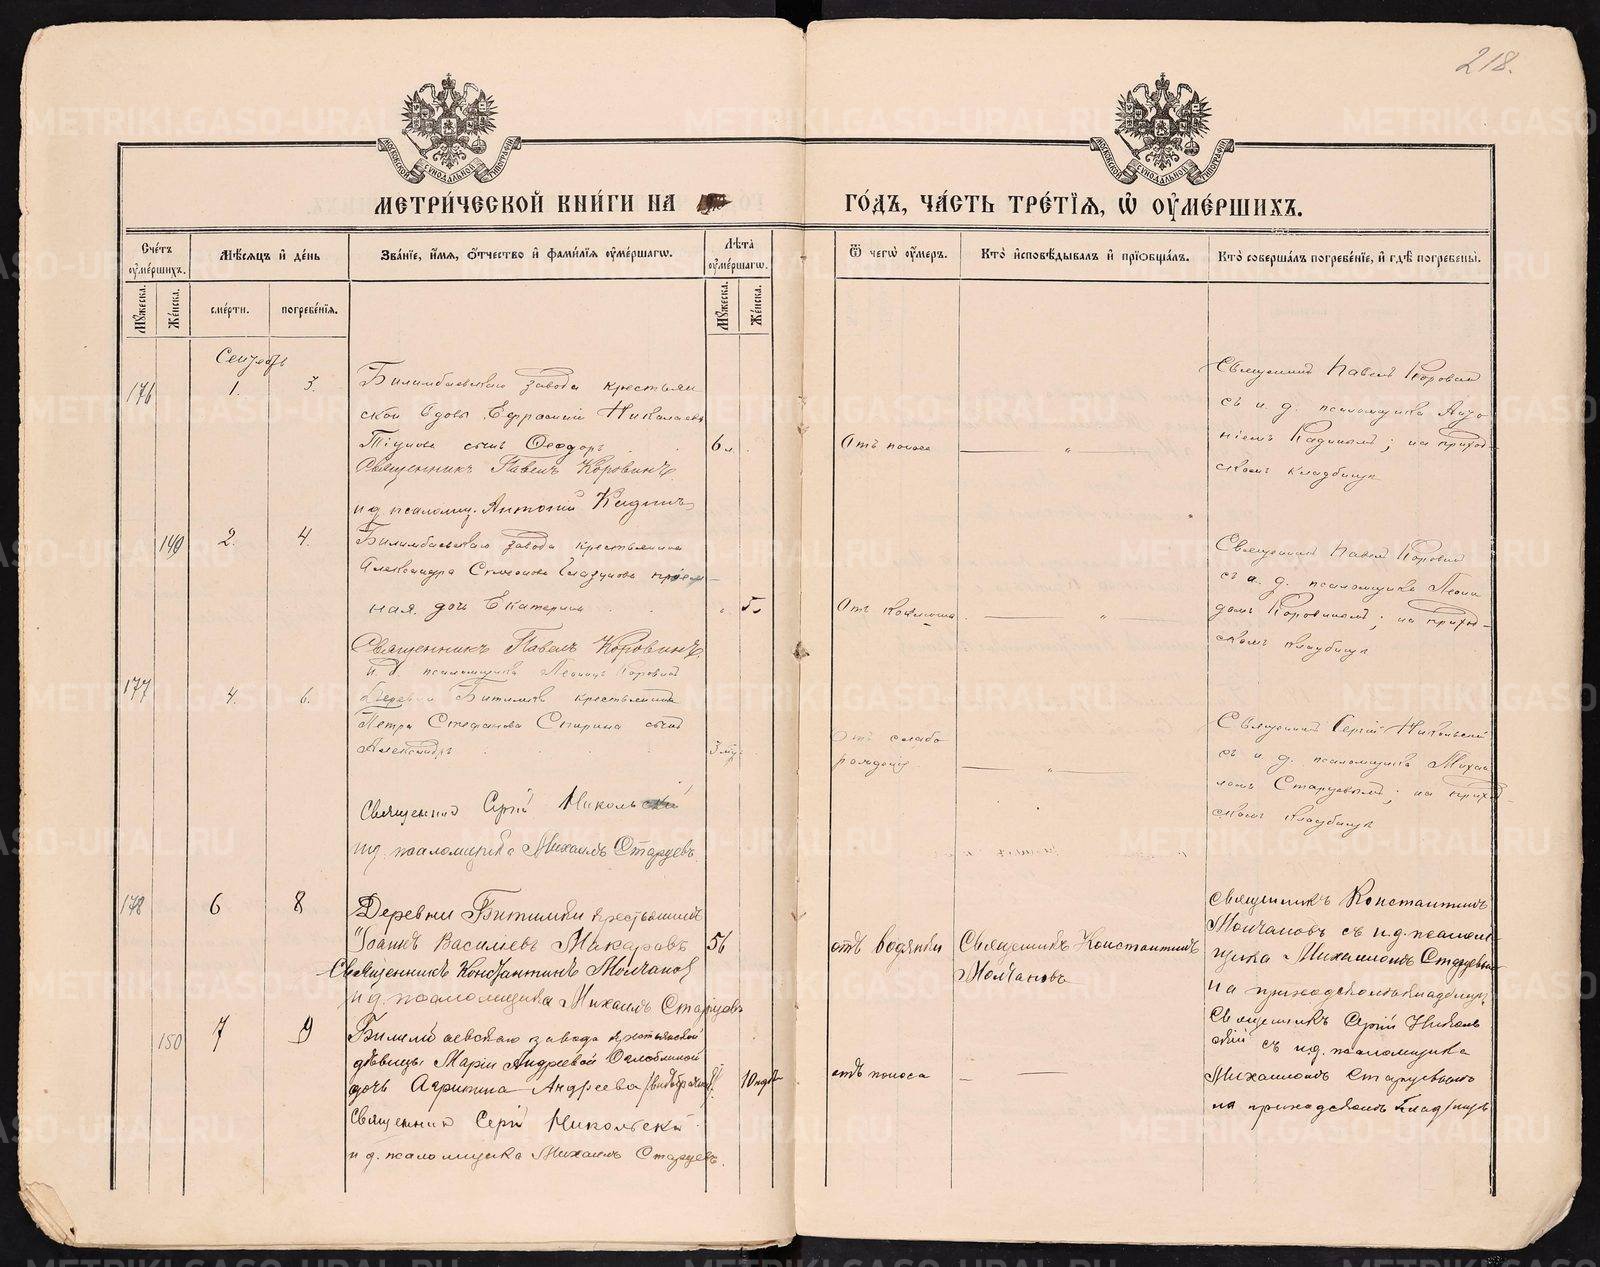 218.
МОСКОВСКОЙ СѴНОДАЛЬНОЙ ТИПОГРАФІИ
МОСКОВСКОЙ СѴНОДАЛЬНОЙ ТИПОГРАФІИ
МЕТРИ́ЧЕСКОЙ КНИ́ГИ НА
ГО́ДЪ, ЧА́СТЬ ТРЕ́ТІѦ, Ѡ҆ ОУ҆МЕ́РШИХЪ.
Сче́тъ оу҆ме́ршихъ.
Мѣ́сяцъ и҆ де́нь
Зва́нїе, и҆́мя, ѻ҆́тчество и҆ фами́лїя оу҆ме́ршагѡ.
Лѣ́та оу҆ме́ршагѡ.
Ѿ чегѡ̀ оу҆́меръ.
Кто̀ и҆сповѣ́дывалъ и҆ прїѡбща́лъ.
Кто̀ соверша́лъ погребе́нїе, и҆ гдѣ̀ погребены̀.
Мꙋ́жеска.
Же́нска.
сме́рти.
погребе́нїя.
Мꙋ́жеска.
Же́нска.
Сентябрь
176 1. 3.
Билимбаевскаго завода крестьян
ской вдовы Николаевой
сынъ Ѳеодоръ 6 л.
Священникъ Павелъ Коровинъ
и д. псаломщ. Антоній Кадинъ
Отъ поноса
"
Священникъ Павелъ Коровин
съ и. д. псаломщика Анто
ніемъ Кадинымъ; на приход-
скомъ кладбище
149 2. 4.
Билимбаевскаго завода крестьянина
Александра Симеонова Глазунова прiем
ная дочь Екатерина " 5.
Священникъ Павелъ Коровинъ
и. д. псаломщика Леонидъ Коровинъ
Отъ
"
Священникъ Павелъ Коровин
съ и. д. псаломщика Леони
домъ Коровинымъ; на приход-
скомъ кладбище
177 4. 6.
Деревни Битимки крестьянина
Петра Стефанова Спирина сынъ
Александръ 3 мѣс.
Священник Сергій Никольскій
и д. псаломщика Михаилъ Старцевъ
Отъ слабо
рожденія
"
Священник Сергій Никольский
съ и. д. псаломщика Михаи
ломъ Старцевымъ; на приход
скомъ кладбище
178 6 8
Деревни Битимки крестьянинъ
Іоаннъ Василіевъ Макаровъ 56
Священникъ Константинъ Молчановъ
и д. псаломщика Михаилъ Старцевъ
отъ водянки
Священникъ Константинъ
Молчановъ
священникъ Константинъ
Молчановъ съ и.д. псалом-
щика Михаиломъ Старцевымъ
на приходскомъ кладбищѣ
150 7 9
Билимбаевскаго завода крестьянской
дѣвицы Маріи Андреевой
дочь Агрипина Андреева 10 нед.
Священник Сергій Никольскій
и д. псаломщика Михаилъ Старцевъ.
отъ поноса
Священникъ Сергій Николь
скій съ и.д. псаломщика
Михаиломъ Старцевымъ
на приходскомъ кладбищѣ